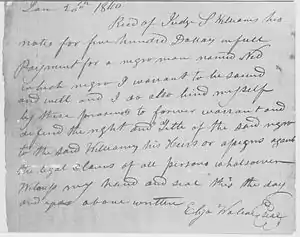 Jan 20th 1840
Recd of Judge S Williams his
notes for five hundred Dollars in full
Payment for a negro man named Ned
which negro I warrant to be sound
and well and I do also bind myself
by these presents to forever warrant and
defend the right and Title of the said negro
to the said Williams his Heirs or assigns against
the legal claims of all persons whatsoever
Witness my hand and seal this the day
and year above written
Seal